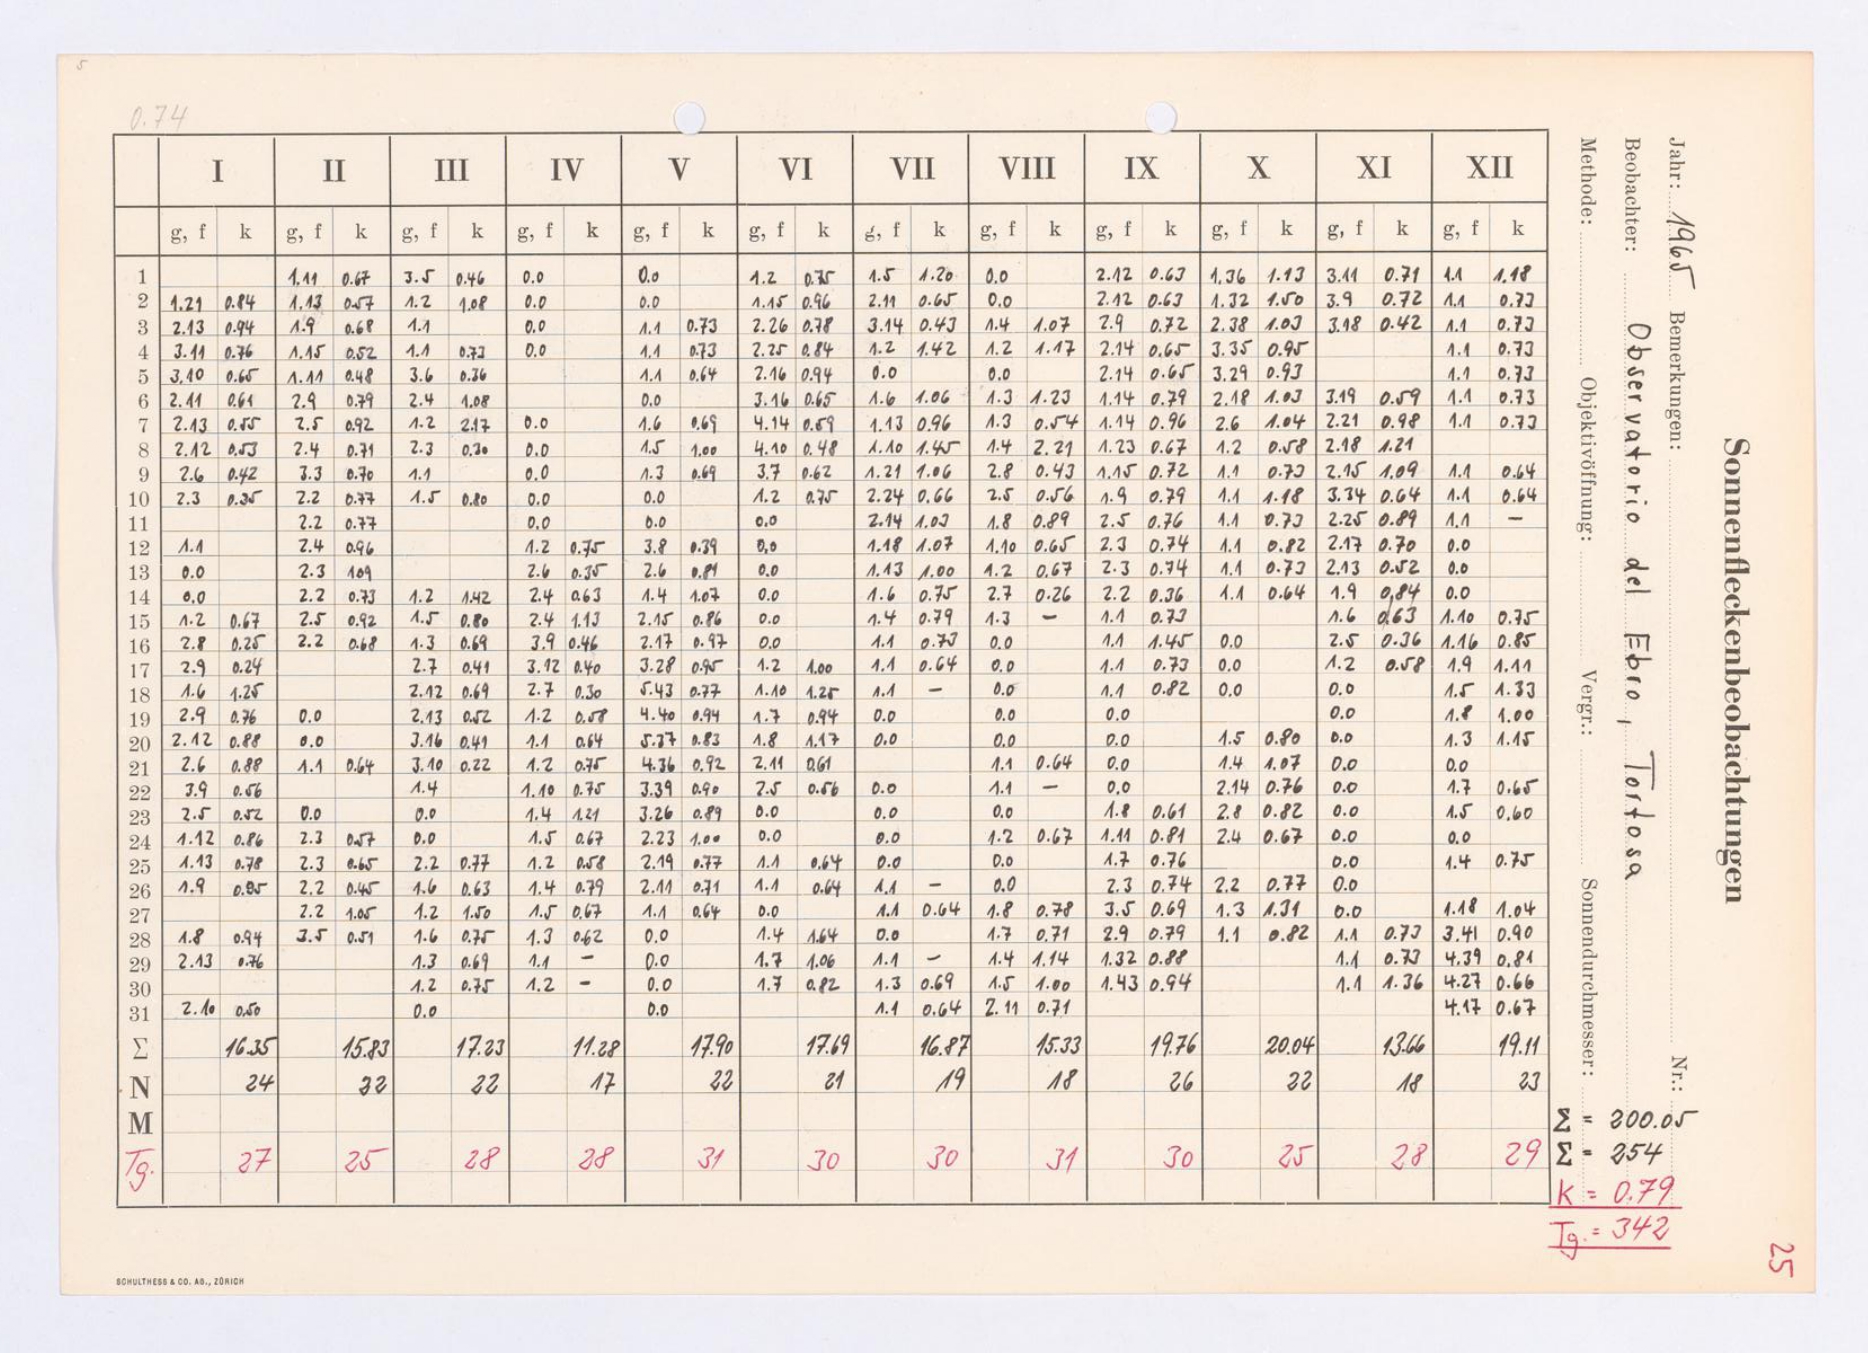 5
0.74
I II III IV V VI VII VIII IX X XI XII
g, f k g, f k g, f k g, f k g, f k g, f k g, f k g, f k g, f k g, f k g, f k g, f k
1 1.11 0.67 3.5 0.46 0.0 0.0 1.2 0.75 1.5 1.20 0.0 2.12 0.63 1.36 1.13 3.11 0.71 1.1 1.18
2 1.21 0.84 1.13 0.57 1.2 1.08 0.0 0.0 1.15 0.96 2.11 0.65 0.0 2.12 0.63 1.32 1.50 3.9 0.72 1.1 0.73
3 2.13 0.94 1.9 0.68 1.1 0.0 1.1 0.73 2.26 0.78 3.14 0.43 1.4 1.07 2.9 0.72 2.38 1.03 3.18 0.42 1.1 0.73
4 3.11 0.76 1.15 0.52 1.1 0.73 0.0 1.1 0.73 2.25 0.84 1.2 1.42 1.2 1.17 2.14 0.65 3.35 0.95 1.1 0.73
5 3.10 0.65 1.11 0.48 3.6 0.36 1.1 0.64 2.16 0.94 0.0 0.0 2.14 0.65 3.29 0.93 1.1 0.73
6 2.11 0.61 2.9 0.79 2.4 1.08 0.0 3.16 0.65 1.6 1.06 1.3 1.23 1.14 0.79 2.18 1.03 3.19 0.59 1.1 0.73
7 2.13 0.55 2.5 0.92 1.2 2.17 0.0 1.6 0.69 4.14 0.59 1.13 0.96 1.3 0.54 1.14 0.96 2.6 1.04 2.21 0.98 1.1 0.73
8 2.12 0.53 2.4 0.71 2.3 0.30 0.0 1.5 1.00 4.10 0.48 1.10 1.45 1.4 2.21 1.23 0.67 1.2 0.58 2.18 1.21
9 2.6 0.42 3.3 0.70 1.1 0.0 1.3 0.69 3.7 0.62 1.21 1.06 2.8 0.43 1.15 0.72 1.1 0.73 2.15 1.09 1.1 0.64
10 2.3 0.35 2.2 0.77 1.5 0.80 0.0 0.0 1.2 0.75 2.24 0.66 2.5 0.56 1.9 0.79 1.1 1.18 3.34 0.64 1.1 0.64
11 2.2 0.77 0.0 0.0 0.0 2.14 1.03 1.8 0.89 2.5 0.76 1.1 0.73 2.25 0.89 1.1 –
12 1.1 2.4 0.96 1.2 0.75 3.8 0.39 0.0 1.18 1.07 1.10 0.65 2.3 0.74 1.1 0.82 2.17 0.70 0.0
13 0.0 2.3 109 2.6 0.35 2.6 0.81 0.0 1.13 1.00 1.2 0.67 2.3 0.74 1.1 0.73 2.13 0.52 0.0
14 0.0 2.2 0.73 1.2 1.42 2.4 0.63 1.4 1.07 0.0 1.6 0.75 2.7 0.26 2.2 0.36 1.1 0.64 1.9 0,84 0.0
15 1.2 0.67 2.5 0.92 1.5 0.80 2.4 1.13 2.15 0.86 0.0 1.4 0.79 1.3 – 1.1 0.73 1.6 0.63 1.10 0.75
16 2.8 0.25 2.2 0.68 1.3 0.69 3.9 0.46 2.17 0.97 0.0 1.1 0.73 0.0 1.1 1.45 0.0 2.5 0.36 1.16 0.85
17 2.9 0.24 2.7 0.41 3.12 0.40 3.28 0.95 1.2 1.00 1.1 0.64 0.0 1.1 0.73 0.0 1.2 0.58 1.9 1.11
18 1.6 1.25 2.12 0.69 2.7 0.30 5.43 0.77 1.10 1.25 1.1 – 0.0 1.1 0.82 0.0 0.0 1.5 1.33
19 2.9 0.76 0.0 2.13 0.52 1.2 0.58 4.40 0.94 1.7 0.94 0.0 0.0 0.0 0.0 1.8 1.00
20 2.12 0.88 0.0 3.16 0.41 1.1 0.64 5.37 0.83 1.8 1.17 0.0 0.0 0.0 1.5 0.80 0.0 1.3 1.15
21 2.6 0.88 1.1 0.64 3.10 0.22 1.2 0.75 4.36 0.92 2.11 0.61 1.1 0.64 0.0 1.4 1.07 0.0 0.0
22 3.9 0.56 1.4 1.10 0.75 3.39 0.90 2.5 0.56 0.0 1.1 – 0.0 2.14 0.76 0.0 1.7 0.65
23 2.5 0.52 0.0 0.0 1.4 1.21 3.26 0.89 0.0 0.0 0.0 1.8 0.61 2.8 0.82 0.0 1.5 0.60
24 1.12 0.86 2.3 0.57 0.0 1.5 0.67 2.23 1.00 0.0 0.0 1.2 0.67 1.11 0.81 2.4 0.67 0.0 0.0
25 1.13 0.78 2.3 0.65 2.2 0.77 1.2 0.58 2.19 0.77 1.1 0.64 0.0 0.0 1.7 0.76 0.0 1.4 0.75
26 1.9 0.85 2.2 0.45 1.6 0.63 1.4 0.79 2.11 0.71 1.1 0.64 1.1 – 0.0 2.3 0.74 2.2 0.77 0.0
27 2.2 1.05 1.2 1.50 1.5 0.67 1.1 0.64 0.0 1.1 0.64 1.8 0.78 3.5 0.69 1.3 1.31 0.0 1.18 1.04
28 1.8 0.94 3.5 0.51 1.6 0.75 1.3 0.62 0.0 1.4 1.64 0.0 1.7 0.71 2.9 0.79 1.1 0.82 1.1 0.73 3.41 0.90
29 2.13 0.76 1.3 0.69 1.1 – 0.0 1.7 1.06 1.1 – 1.4 1.14 1.32 0.88 1.1 0.73 4.39 0.81
30 1.2 0.75 1.2 – 0.0 1.7 0.82 1.3 0.69 1.5 1.00 1.43 0.94 1.1 1.36 4.27 0.66
31 2.10 0.50 0.0 0.0 1.1 0.64 2.11 0.71 4.17 0.67
Σ 16.35 15.83 17.23 11.28 17.90 17.69 16.87 15.33 19.76 20.04 13.66 19.11
N 24 22 22 17 22 21 19 18 26 22 18 23
M
Tg. 27 25 28 28 31 30 30 31 30 25 28 29
Σ = 200.05
Σ = 254
K = 0.79
Tg. = 342
Sonnenfleckenbeobachtungen
Jahr: 1965 Bemerkungen: Nr.:
Beobachter: Observatorio del Ebro, Tortosa
Methode: Objektivöffnung: Vergr.: Sonnendurchmesser:
25
SCHULTHESS & CO. AG., ZÜRICH